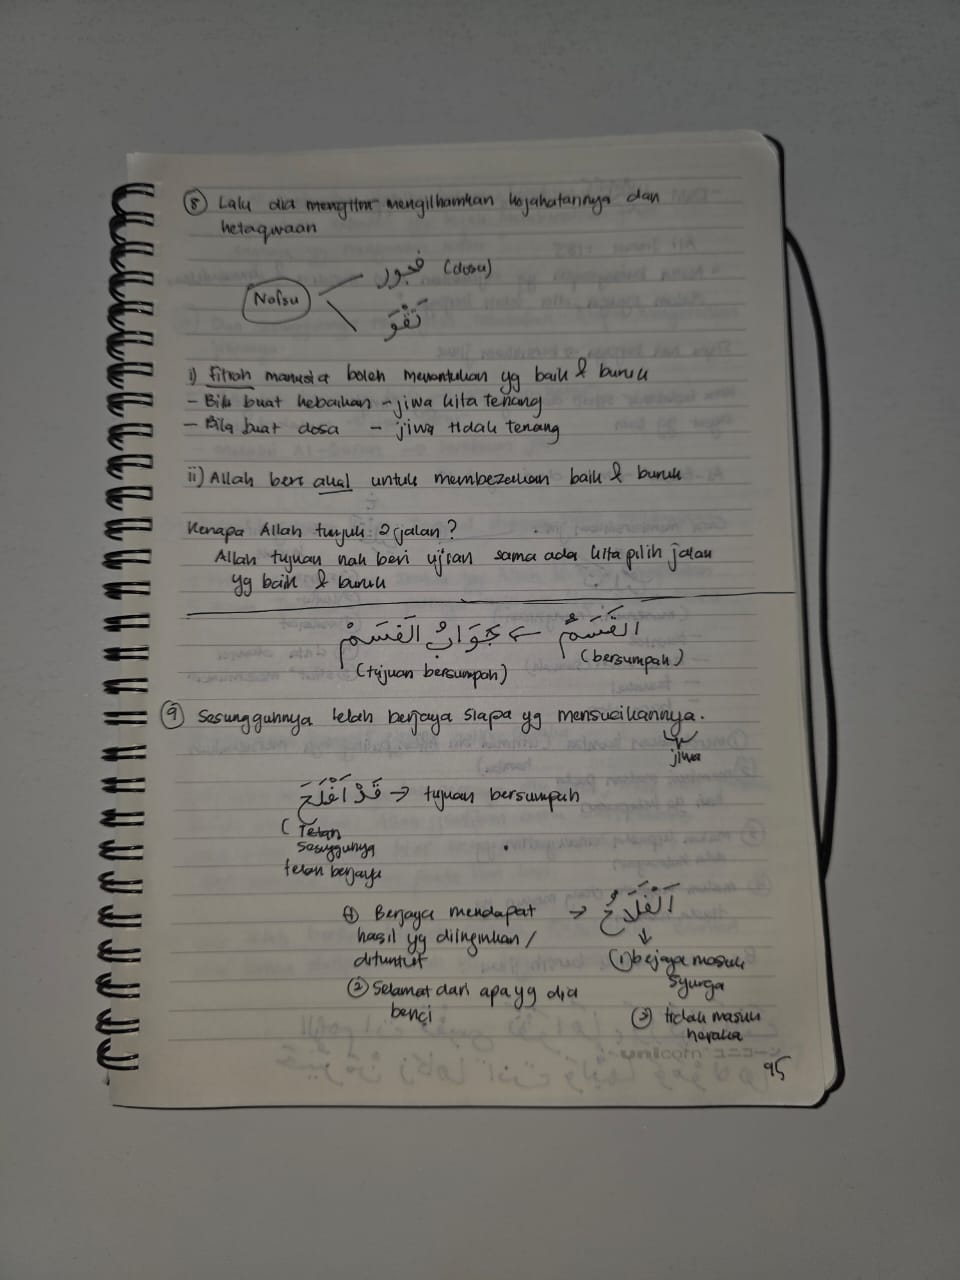 ⑧ Lalu dia mengilhamkan kejahatannya dan
ketaqwaan
Nafsu
فجور (dosa)
تَقْوَ
i) Fitrah manusia boleh menentukan yg baik & buruk
- Bila buat kebaikan - jiwa kita tenang
- Bila buat dosa - jiwa tidak tenang
ii) Allah beri akal untuk membezakan baik & buruk
Kenapa Allah tunjuk 2 jalan?
Allah tujuan nak beri ujian sama ada kita pilih jalan
yg baik & buruk
القَسَمُ ← جَوَابُ القَسَمْ
(bersumpah)
(tujuan bersumpah)
⑨ Sesungguhnya telah berjaya siapa yg mensucikannya.
jiwa
قَدْ اَفْلَحَ → tujuan bersumpah
(Telah
Sesuggunya
telah berjaya
① Berjaya mendapat → اَلْفَلَاحُ
hasil yg diinginkan /
dituntut
② Selamat dari apa yg dia
benci
① bejaya masuk
syurga
② tidak masuk
neraka
unicorn ユニコーン
95